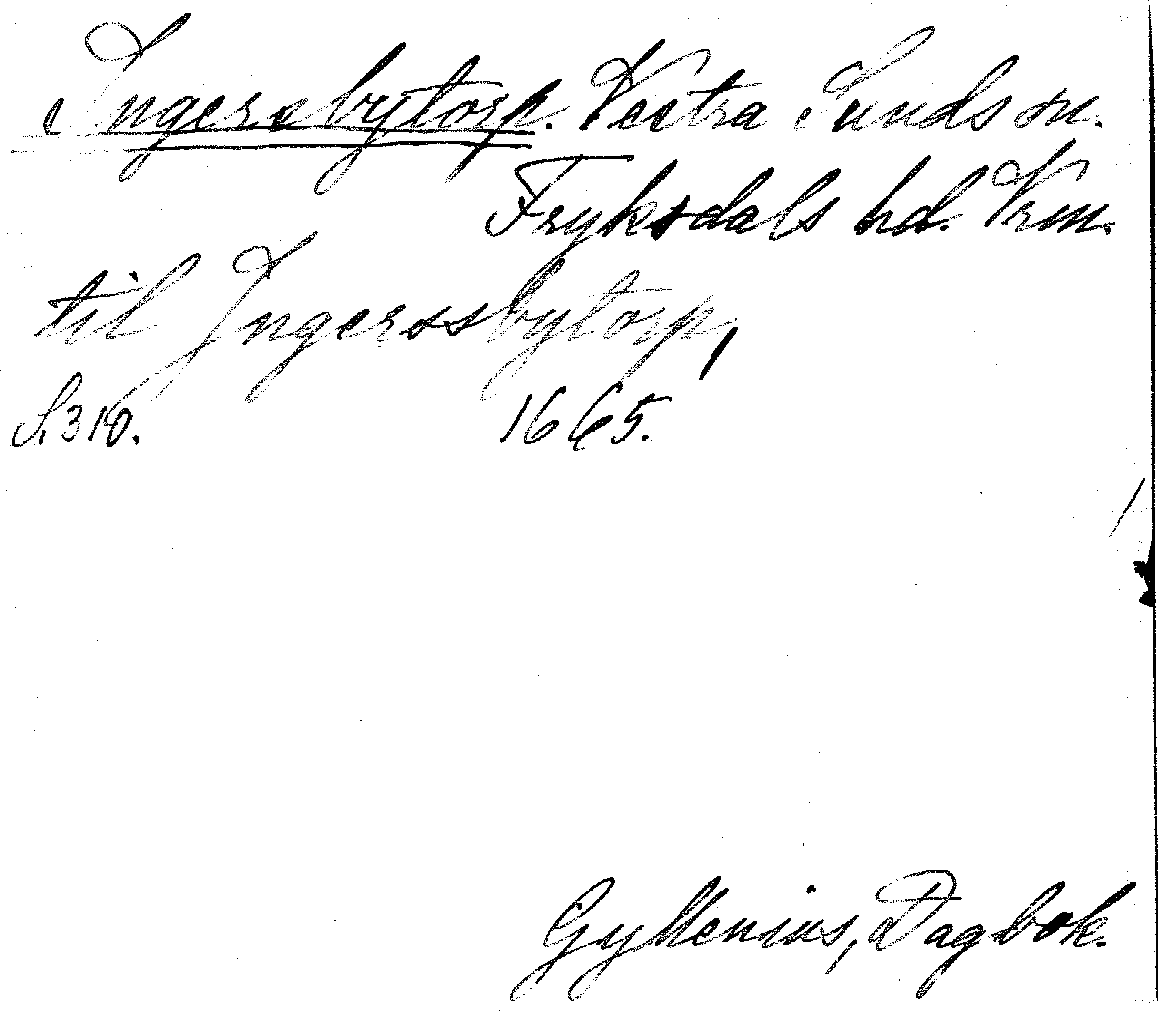 Ingersbytorp. Vestra Sunds sn.
Fryksdals hd. Vrm.
til Ingerssbytorp,
S. 310. 1665.
Gyllenius, Dagbok.